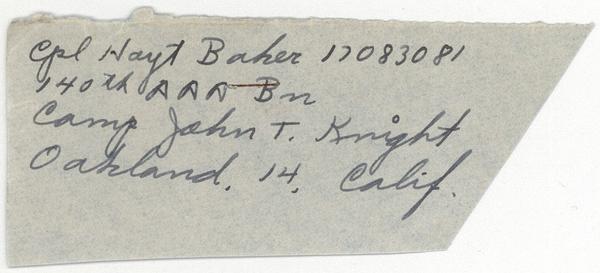 Cpl Hoyt Baker 17083081
140th AAA Bn
Camp John T. Knight
Oakland, 14, Calif.